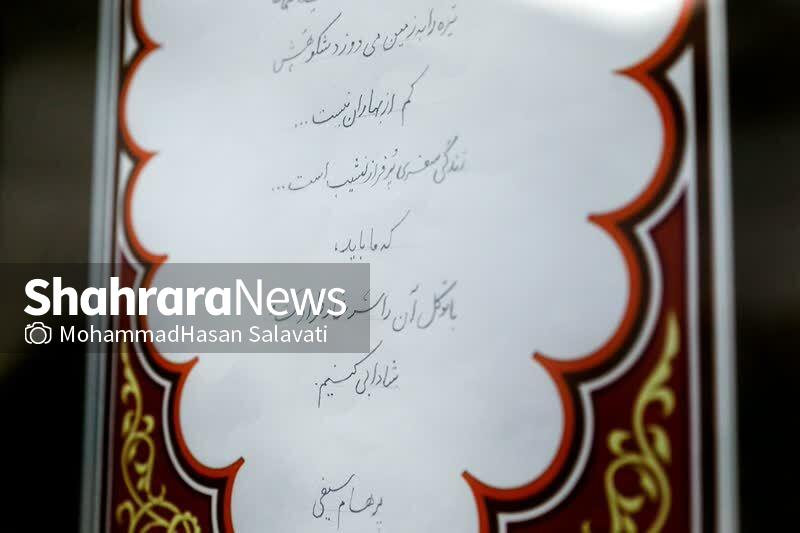 تیره را به زمین می دوزد شکوهش
کم از بهاران نیست...
زندگی سفری پُر فراز نشیب است...
که ما باید،
با توکل آن را سر
شادابی کنیم.
پرهام سیفی
ShahraraNews
MohammadHasan Salavati